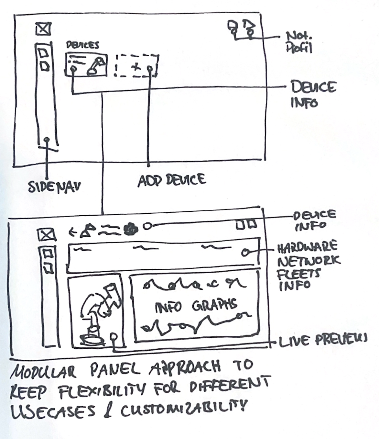 DEVICES
Not.
Profil
DEVICE
INFO
SIDENAV
ADD DEVICE
DEVICE
INFO
HARDWARE
NETWORK
FLEETS
INFO
INFO GRAPHS
LIVE PREVIEW
MODULAR PANEL APPROACH TO
KEEP FLEXIBILITY FOR DIFFERENT
USECASES & CUSTOMIZABILITY